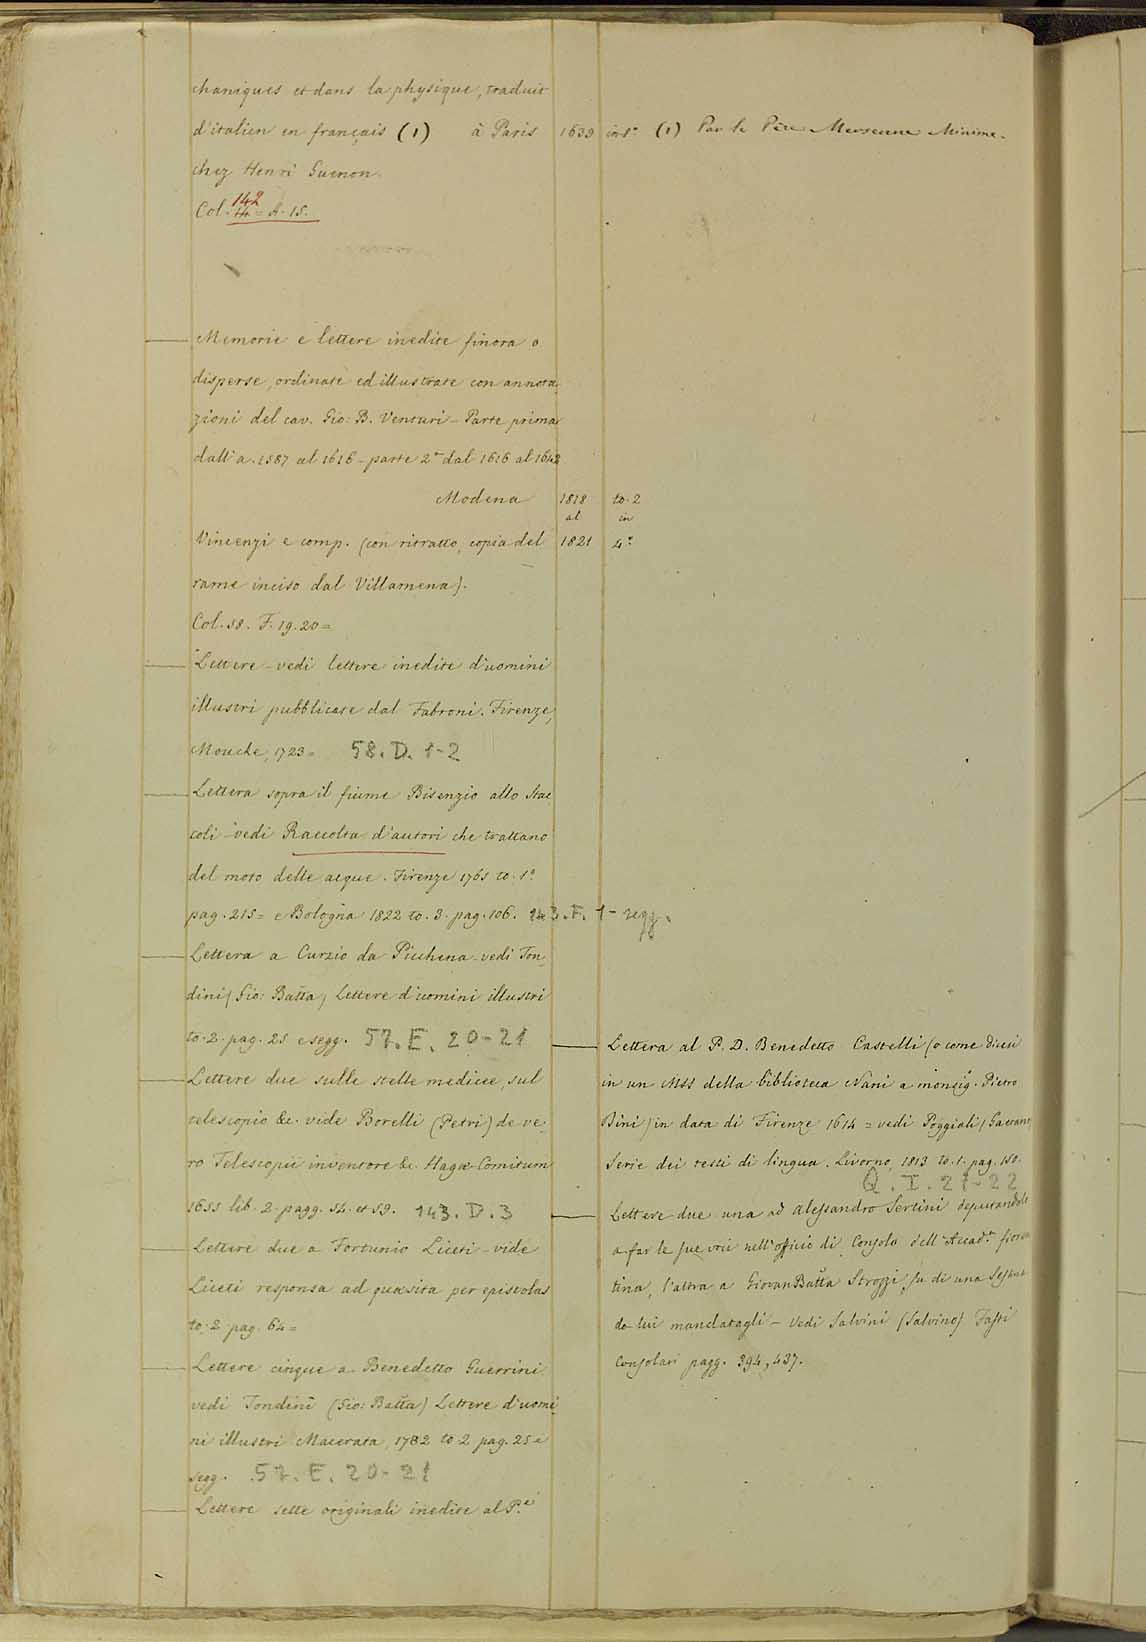 chaniques et dans la physique, traduit
d'italien en français (1) à Paris 1639 in 8° (1) Par le Père Mersenne Minime.
chez Henri Guenon.
Col. 142 A. 15.
Memorie e lettere inedite finora o
disperse, ordinate ed illustrate con annota
zioni del cav. Gio: B. Venturi - Parte prima
dall'a. 1587 al 1616 - parte 2a dal 1616 al 1642
Modena 1818 to. 2
al in
Vincenzi e comp. (con ritratto, copia del 1821 4°
rame inciso dal Villamena).
Col. 58. F. 19. 20 =
Lettere - vedi lettere inedite d'uomini
illustri pubblicate dal Fabroni. Firenze,
Mouche, 1723 = 58. D. 1-2
Lettera sopra il fiume Bisenzio allo Stac
coli - vedi Raccolta d'autori che trattano
del moto delle acque. Firenze 1765 to. 1°
pag. 215 = e Bologna 1822 to. 3. pag. 106. 143. F. 1 - segg.
Lettera a Curzio da Picchena - vedi Ton
dini (Gio: Batta) Lettere d'uomini illustri
to. 2. pag. 25 e segg. 57. E. 20-21
Lettere due sulle stelle medicee, sul
telescopio &c. vide Borelli (Petri) de ve
ro Telescopii inventore &c. Hagæ Comitum
1655 lib. 2. pagg. 54. et 59. 143. D. 3
Lettere due a Fortunio Liceti - vide
Liceti responsa ad quæsita per epistolas
to. 2. pag. 64 =
Lettere cinque a Benedetto Guerrini
vedi Tondini (Gio: Batta) Lettere d'uomi
ni illustri Macerata, 1782 to. 2 pag. 25 e
segg. 57. E. 20-21
Lettere sette originali inedite al P.e
Lettera al P. D. Benedetto Castelli (o come dicesi
in un Mss della biblioteca Nani a monsig. Pietro
Dini) in data di Firenze 1614 = vedi Poggiali (Gaetano)
Serie dei testi di lingua. Livorno, 1813 to. 1. pag. 150.
Q. I. 21-22
Lettere due una ad Alessandro Sertini deputandolo
a far le sue veci nell'offizio di Consolo dell'Accad.a fioren
tina, l'altra a Giovan Batta Strozzi, su di una
da lui mandatagli - vedi Salvini (Salvino) Fasti
Consolari pagg. 394, 437.